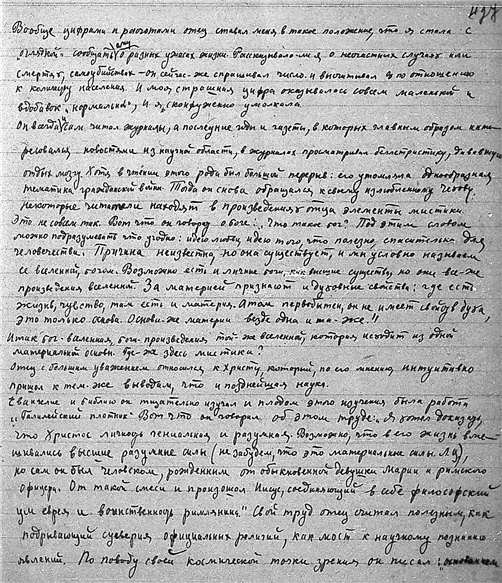 Вообще цифрами и расчетами отец ставил меня в такое положение, что я стала с
"оглядкой" сообщать ему о разных ужасах жизни. Рассказывала-ли я о несчастном случае или
смертях, самоубийствах - он сейчас-же спрашивал число и высчитывал % по отношению
к количеству населения. И моя страшная цифра оказывалась совсем маленькой и
вдобавок "нормальной", и я сконфуженно умолкала.
Он всегда сам читал журналы, а последние годы и газеты, в которых главным образом инте-
ресовался новостями из научной области, в журналах просматривал беллетристику, давая
отдых мозгу. Хотя в чтении этого рода был большой перерыв: его утомляла однообразная
тематика гражданской войны. Тогда он снова обращался к своему излюбленному Чехову.
Некоторые читатели находят в произведениях отца элементы мистики.
Это не совсем так. Вот что он говорил о боге: "Что такое бог? Под этим словом
можно подразумевать что угодно: идею любви, идею того, что полезно, спасительно для
человечества. Причина неизвестна, но она существует, и мы условно называем
ее вселенной, богом. Возможны есть и личные боги, как высшие существа, но они все-же
произведения вселенной. За материей признают и духовные свойства: где есть
жизнь, чувство, там есть и материя. Атом первобытен, он не имеет свойств духа,
это только основа. Основа-же материи везде одна и та-же."
Итак бог - вселенная, боги - произведения той-же вселенной, которая исходит из одной
материальной основы. Где-же здесь мистика?
Отец с большим уважением относился к Христу, который, по его мнению, интуитивно
пришел к тем-же выводам, что и позднейшая наука.
Евангелие и библию он тщательно изучал и плодом этого изучения была работа
"Галилейский плотник". Вот что он говорил об этом труде: "Я хотел доказать,
что Христос личность гениальная и разумная. Возможно, что в его жизнь вме-
шивались высшие разумные силы (не забудем, что это материальные силы. Л.Ц.),
но сам он был человеком, рожденным от обыкновенной девушки Марии и римского
офицера. От такой смеси и произошел Иисус, соединяющий в себе философский
ум еврея и воинственность римлянина." Свой труд отец считал полезным, как
подрывающий суеверия официальных религий, как мост к научному познанию
явлений. По поводу своей космической точки зрения он писал: